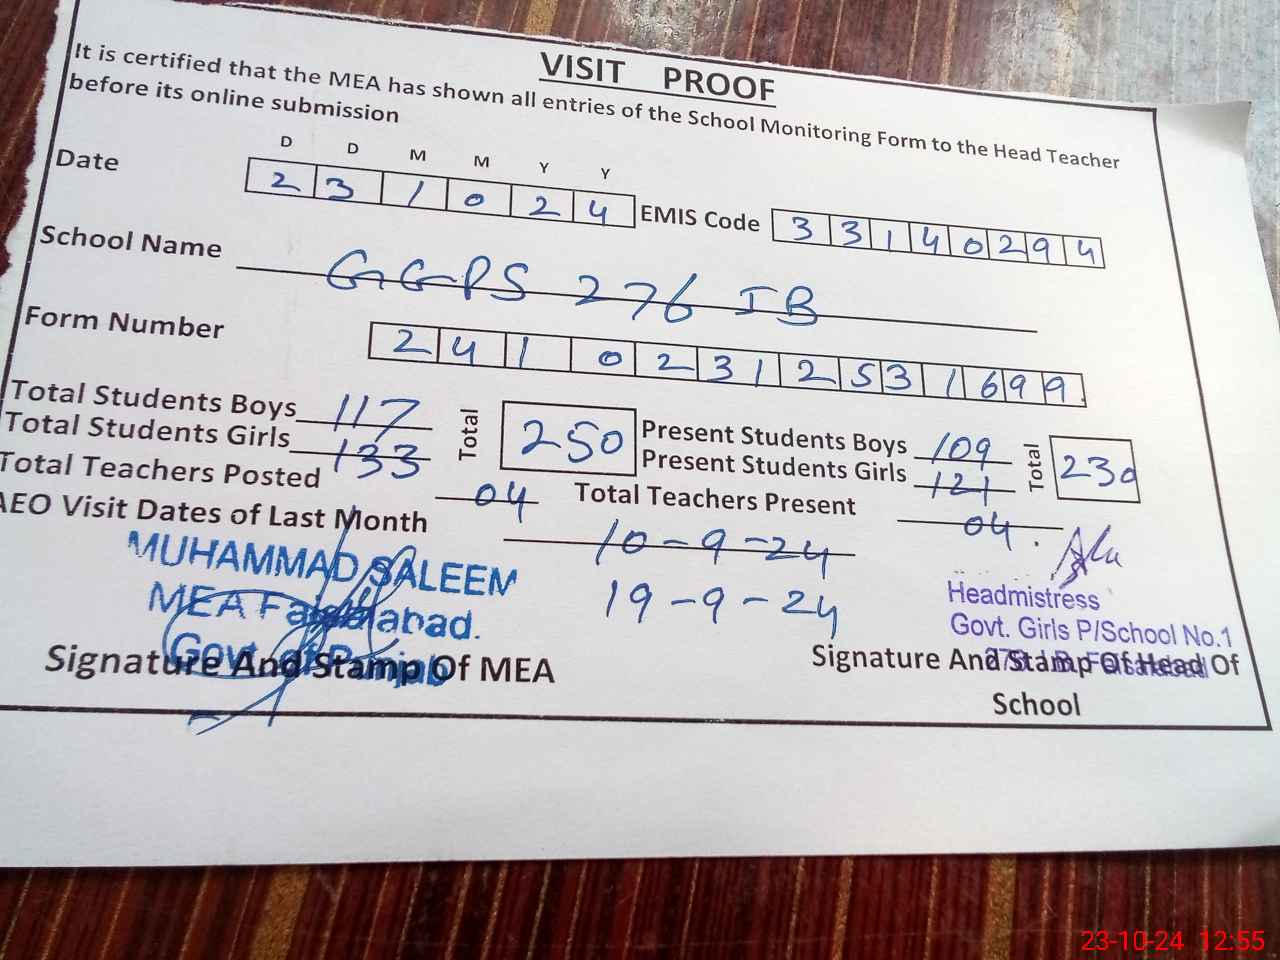 VISIT PROOF
It is certified that the MEA has shown all entries of the School Monitoring Form to the Head Teacher
before its online submission
D D M M Y Y
Date 2 3 1 0 2 4 EMIS Code 3 3 1 4 0 2 9 4
School Name GGPS 276 IB
Form Number 2 4 1 0 2 3 1 2 5 3 1 6 9 9
Total Students Boys 117 Total 250 Present Students Boys 109 Total 230
Total Students Girls 133 Present Students Girls 121
Total Teachers Posted 04 Total Teachers Present 04
AEO Visit Dates of Last Month 10-9-24
19-9-24
MUHAMMAD SALEEM
MEA Faisalabad.
Govt. of Punjab
Signature And Stamp Of MEA
Headmistress
Govt. Girls P/School No.1
Signature And Stamp Of Head Of
School
23-10-24 12:55